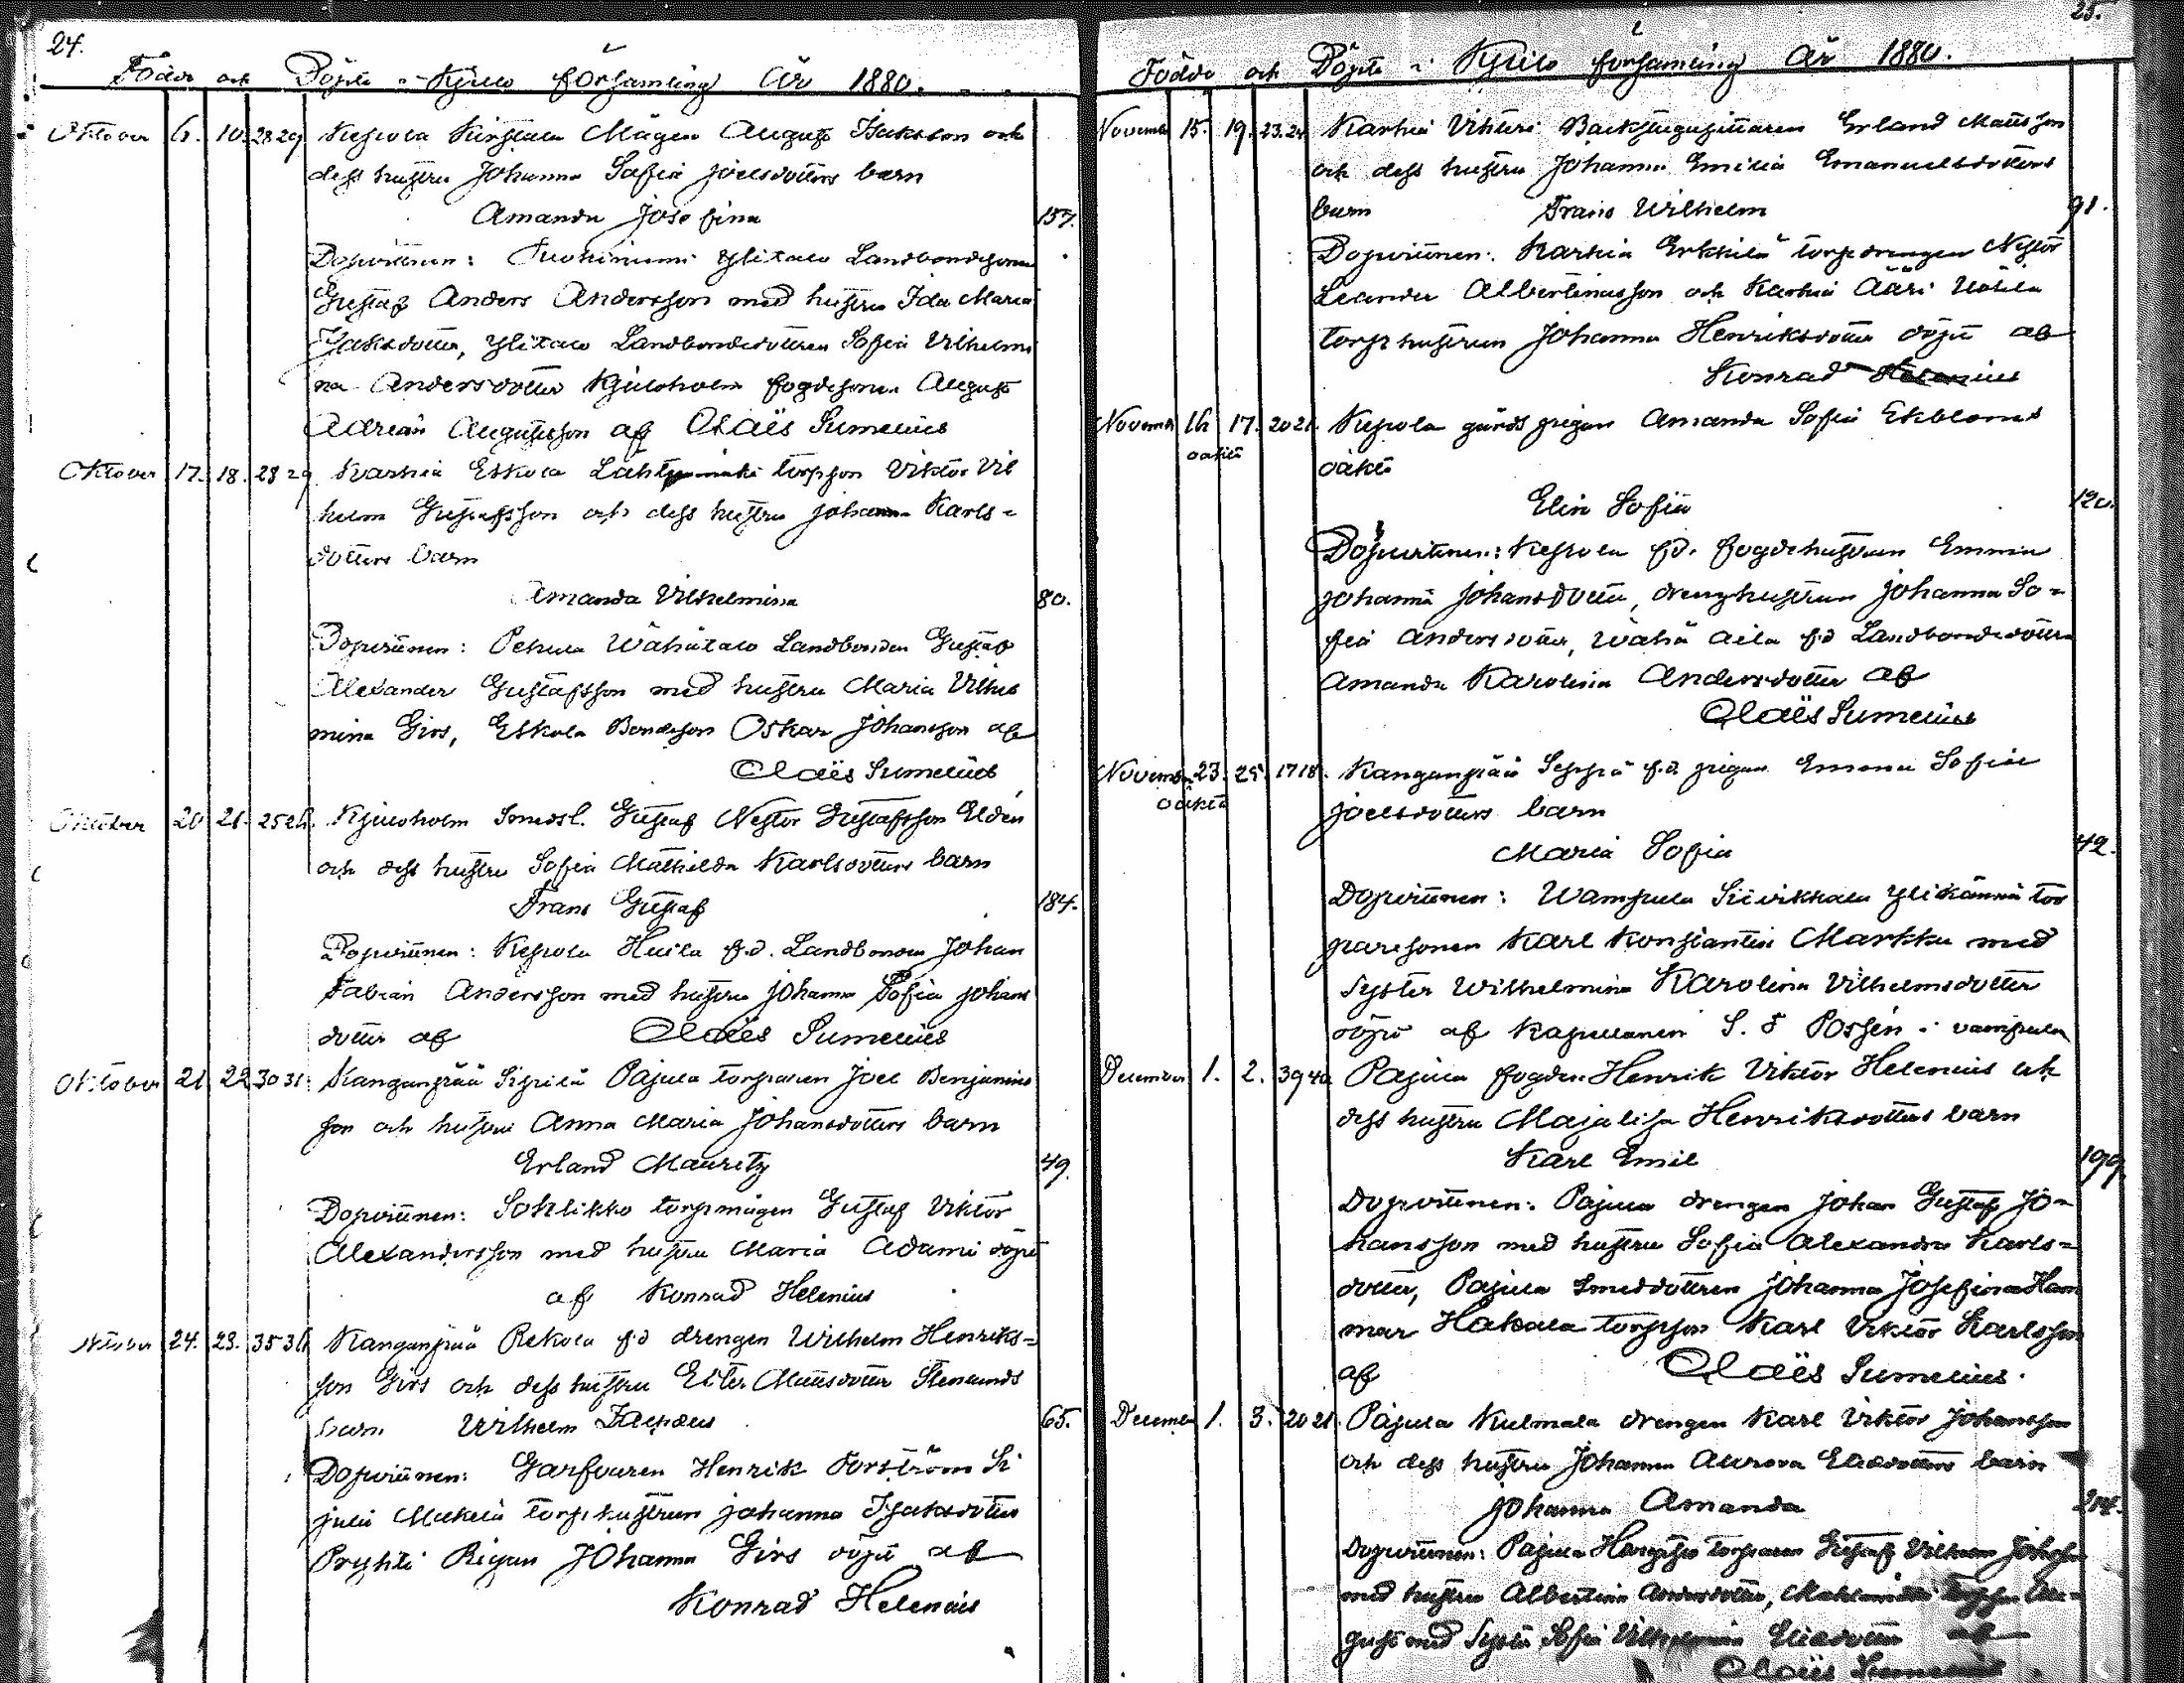 24.
Födde och Döpte i Kjulo församling År 1880.
Oktober 6. 10. 28 29 Kepola Mågen August Isaksson och
dess hustru Johanna Sofia Joelsdotters barn
Amanda Josefina 157.
Dopvittnen: Ylitalo Landbondesonen
Gustaf Anders Andersson med hustru Ida Maria
Isaksdotter, Ylitalo Landbondedottren Sofia Vilhelmi
na Andersdotter Kjuloholm fogdesonen August
Adrian Augustsson af Claës Sumelius
Oktober 17. 18. 28 29 Karhia Eskola torpson Viktor Vil
helm Gustafsson och dess hustru Johanna Karls=
dotters barn
Amanda Vilhelmina 80.
Dopvittnen: Wähätalo Landbonden Gustaf
Alexander Gustafsson med hustru Maria Vilhel
mina Girs, Eskola Bondeson Oskar Johansson af
Claës Sumelius
Oktober 20 21. 25 26. Kjuloholm Smedsl. Gustaf Nestor Gustafsson Eldén
och dess hustru Sofia Mathilda Karlsdotters barn
Frans Gustaf 184.
Dopvittnen: Kepola Huila f.d. Landbonden Johan
Fabian Andersson med hustru Johanna Sofia Johans
dotter af Claës Sumelius
Oktober 21 22 30 31. Kanganpää Sipilä Pajula torparen Joel Benjamins
son och hustru Anna Maria Johansdotters barn
Erland Mauritz 49.
Dopvittnen: Sohlikko torpmågen Gustaf Viktor
Alexandersson med hustru Maria Adami döpt
af Konrad Helenius
Oktober 24. 23. 35 36 Kanganpää Rekola f.d drengen Wilhelm Henriks=
son Girs och dess hustru Ester Mattsdotter Stenlunds
barn Wilhelm 65.
Dopvittnen: Garfvaren Henrik Forsström
Mäkelä torphustrun Johanna Isaksdotter
Pigan Johanna Girs döpt af
Konrad Helenius
25.
Födde och Döpte i Kjulo församling År 1880.
Novemb 15. 19. 23. 24 Karhia Backstugusittaren Erland Mattsson
och dess hustru Johanna Emilia Emanuelsdotters
barn Frans Wilhelm 91.
Dopvittnen: Karhia Erkkilä torpdrengen Nestor
Leander Albertinasson och Karhia Ääri
torphustrun Johanna Henriksdotter döpt af
Konrad Helenius
Novemb 16 17. 20 21. Kepola gårds pigan Amanda Sofia Ekbloms
oäkta oäkta
Elin Sofia 120.
Dopvittnen: Kepola f.d. fogdehustrun Emma
Johanna Johansdotter, drenghustrun Johanna So=
fia Andersdotter, Wähä Aila f.d Landbondedottern
Amanda Karolina Andersdotter af
Claës Sumelius
Novemb 23. 25. 17 18. Kanganpää Seppä f.d. pigan Emma Sofia
oäkta Joelsdotters barn
Maria Sofia 42.
Dopvittnen: Wampula Ylikännö tor
paresonen Karl Konstantin Markku med
Syster Wilhelmina Karolina Vilhelmsdotter
döpt af Kapellanen S. F Possén i Vampula
December 1. 2. 39 40 Pajula fogden Henrik Viktor Helenius och
dess hustru Majalisa Henriksdotters barn
Karl Emil 199.
Dopvittnen: Pajula drengen Johan Gustaf Jo=
hansson med hustru Sofia Alexandra Karls=
dotter, Pajula Smeddottren Johanna Josefina Ham
mar Hakala torpson Karl Viktor Karlsson
af Claës Sumelius.
Decembe 1. 3. 20 21. Pajula Kulmala drengen Karl Viktor Johansson
och dess hustru Johanna Aurora Eliedotters barn
Johanna Amanda 214.
Dopvittnen: Pajula torparen Gustaf
med hustru Albertina Andersdotter, Au=
gust med Syster Sofia Vilhelmina Eliedotter af
Claës Sumelius.